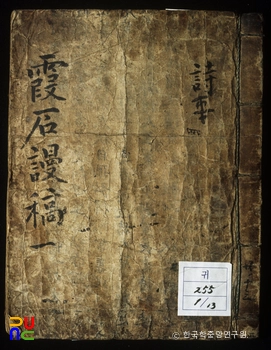 霞石謾稿 一
詩
귀
255
1/13
ⓒ 한국학중앙연구원